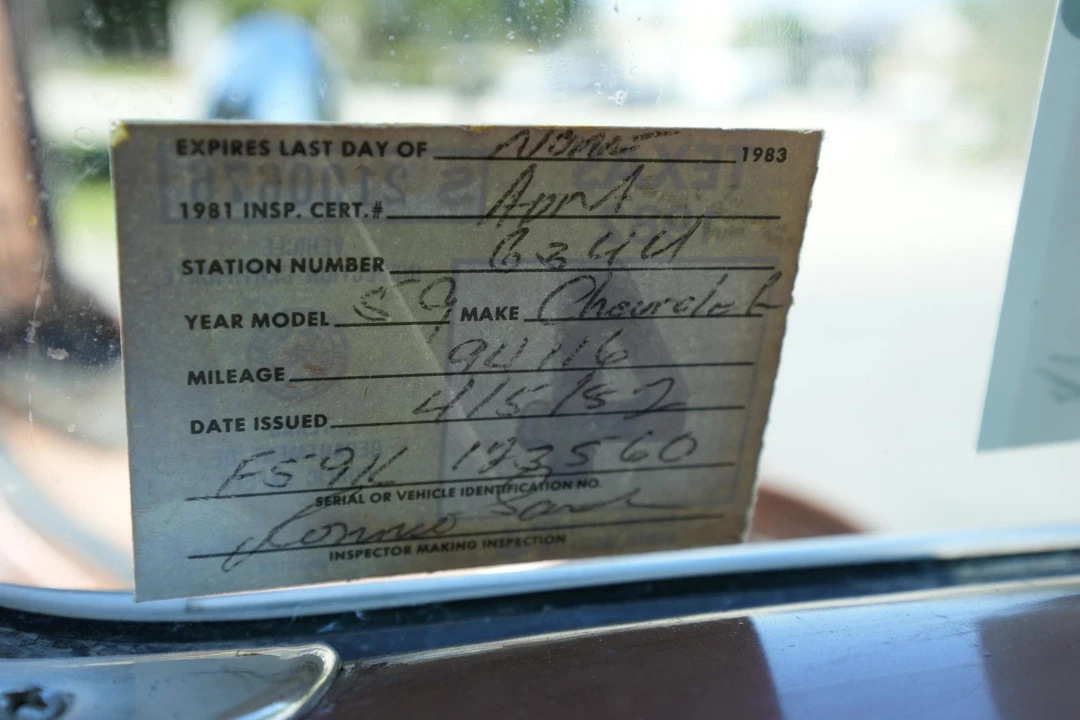 EXPIRES LAST DAY OF None 1983
1981 INSP. CERT.# April
STATION NUMBER 6344
YEAR MODEL 59 MAKE Chevrolet
MILEAGE 94116
DATE ISSUED 4/5/82
F59K 123560
SERIAL OR VEHICLE IDENTIFICATION NO.
INSPECTOR MAKING INSPECTION
S 2100676
TEXAS